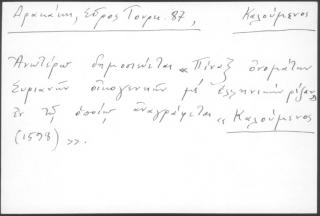 Δρακάκη, Σύρος Τουρκ. 87, Καλούμενος
Ανωτέρω δημοσιεύεται « Πίναξ ονομάτων
Συριανών οικογενειών με ελληνικήν ρίζαν »
εν τῷ οποίῳ αναγράφεται « Καλούμενος
(1598) ».